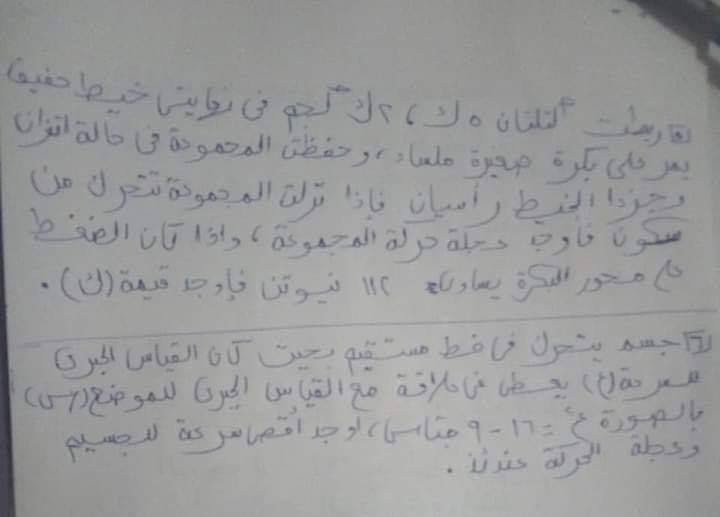 ربطت كتلتان ٥ ك ، ٢ ك كجم فى نهايتى خيط خفيف
يمر على بكرة صغيرة ملساء ، وحفظت المجموعة فى حالة اتزان
وجزءا الخيط رأسيان فإذا تركت المجموعة تتحرك من
سكون فأوجد عجلة حركة المجموعة ، وإذا كان الضغط
على محور البكرة يساوى ١١٢ نيوتن فأوجد قيمة (ك) .
جسم يتحرك فى خط مستقيم بحيث كان القياس الجبرى
للسرعة (ع) يعطى فى علاقة مع القياس الجبرى للموضع (س)
بالصورة ع٢ = ١٦ - ٩ جتاس ، أوجد أقصى سرعة للجسيم
وعجلة الحركة عندئذ .